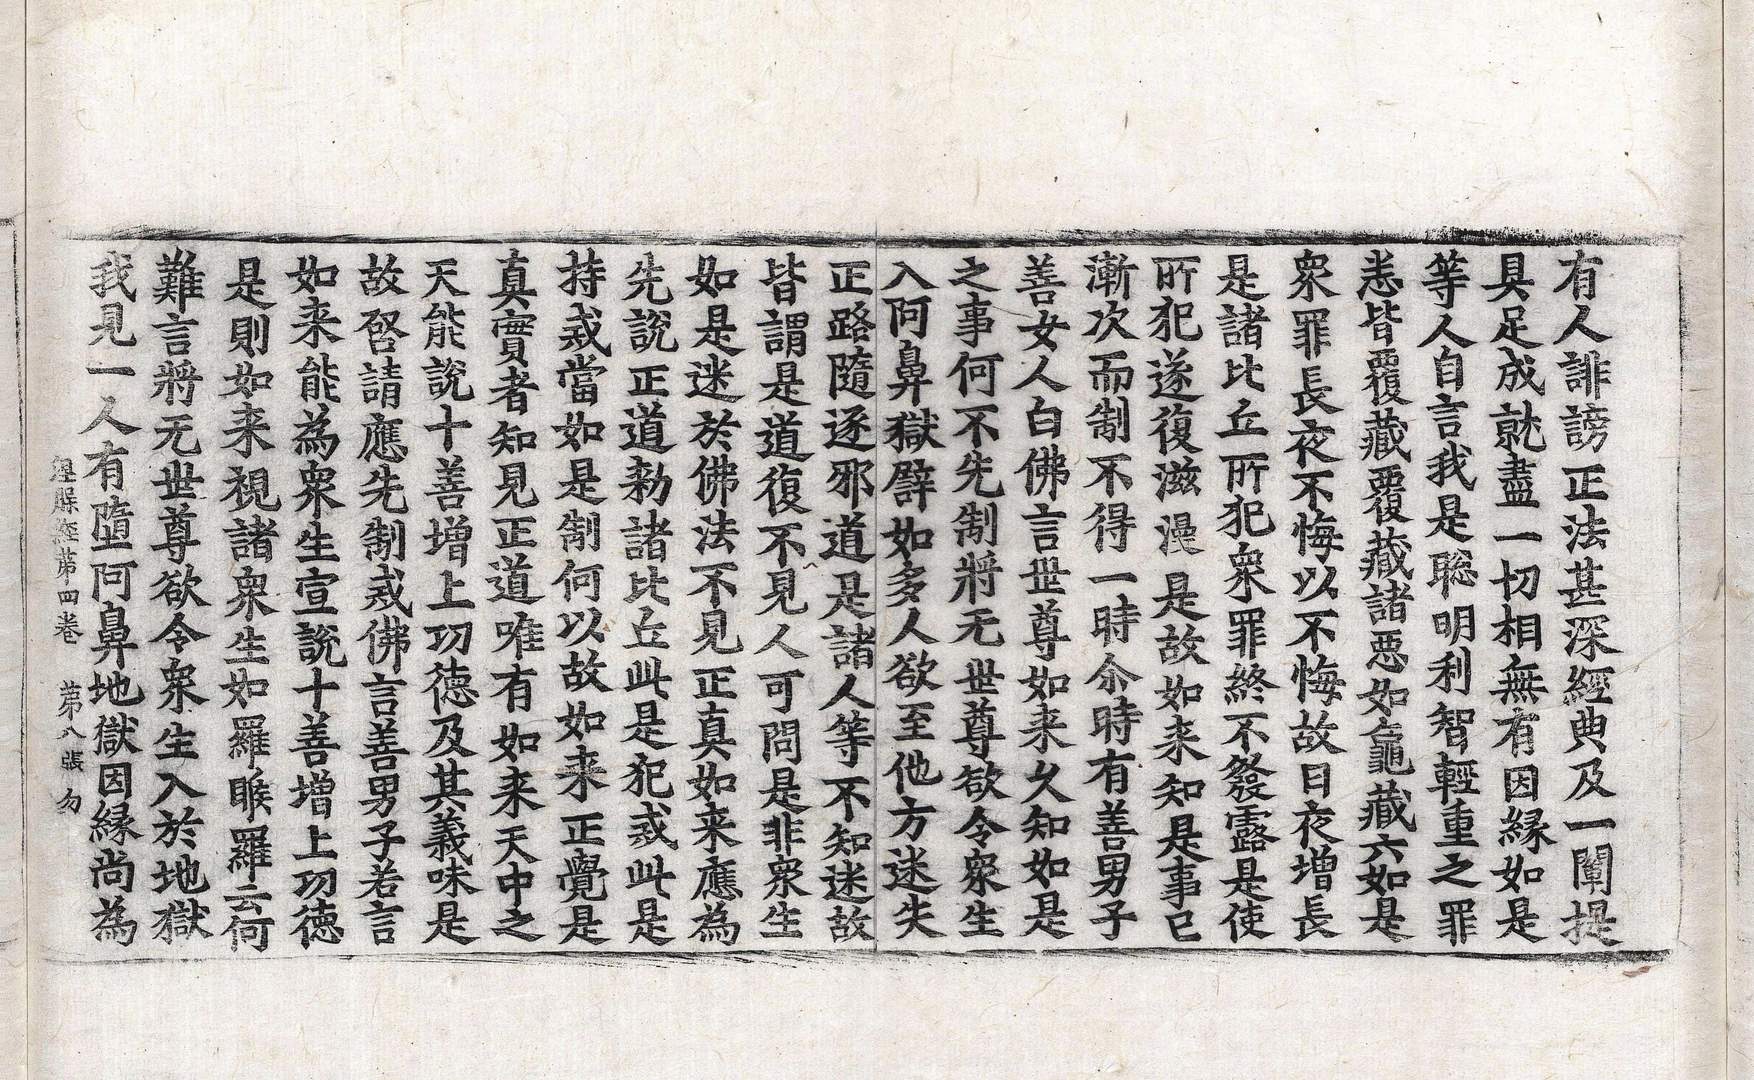 有人誹謗正法甚深經典及一闡提
具足成就盡一切相無有因縁如是
等人自言我是聡明利智輕重之罪
悉皆覆藏覆藏諸惡如龜藏六如是
衆罪長夜不悔以不悔故日夜增長
是諸比丘所犯衆罪終不發露是使
所犯遂復滋漫是故如来知是事已
漸次而制不得一時尒時有善男子
善女人白佛言世尊如来久知如是
之事何不先制將无世尊欲令衆生
入阿鼻獄譬如多人欲至他方迷失
正路隨逐邪道是諸人等不知迷故
皆謂是道復不見人可問是非衆生
如是迷於佛法不見正真如来應為
先說正道勑諸比丘此是犯戒此是
持戒當如是制何以故如来正覺是
真實者知見正道唯有如来天中之
天能說十善增上功德及其義味是
故啓請應先制戒佛言善男子若言
如来能為衆生宣說十善增上功德
是則如来視諸衆生如羅睺羅云何
難言將无世尊欲令衆生入於地獄
我見一人有墮阿鼻地獄因縁尚為
涅槃經第四卷 第八張 勿